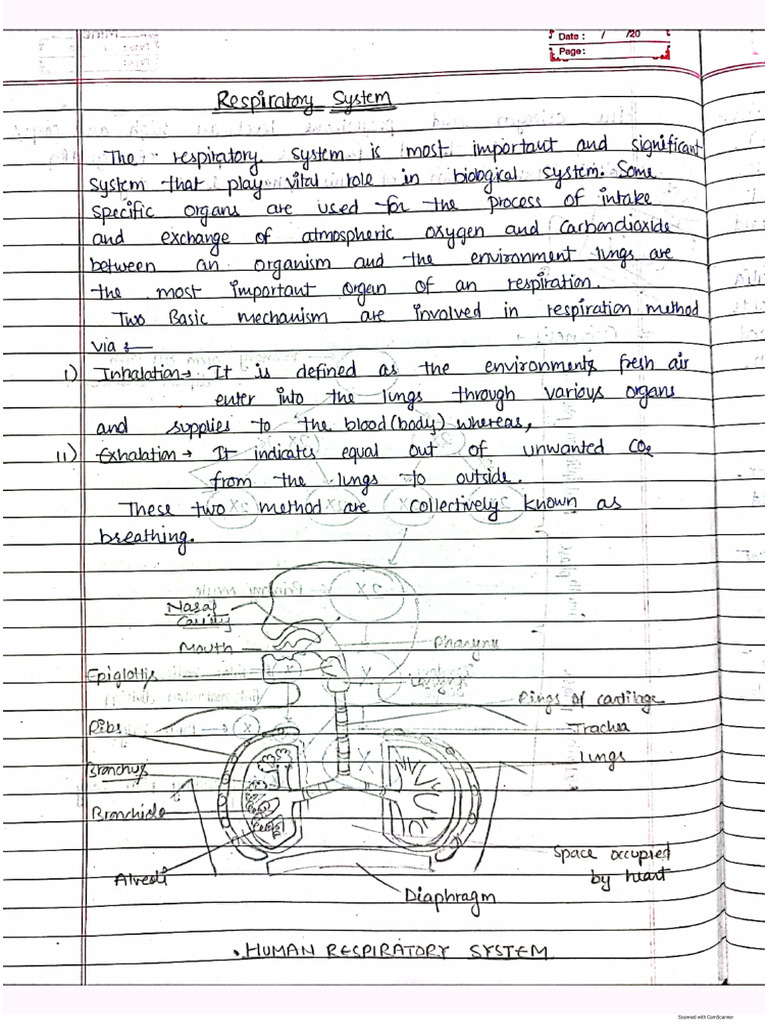 Date : / /20
Page:
Respiratory System
The respiratory system is most important and significant
system that play vital role in biological system. Some
specific organs are used for the process of intake
and exchange of atmospheric oxygen and Carbondioxide
between an organism and the environment lungs are
the most important organ of an respiration.
Two Basic mechanism are involved in respiration method
via :—
I) Inhalation → It is defined as the environments fresh air
enter into the lungs through various organs
and supplies to the blood (body) whereas,
II) Exhalation → It indicates equal out of unwanted CO2
from the lungs to outside.
These two method are collectively known as
breathing.
Nasal
Cavity
Mouth
Pharynx
Epiglottis
Larynx
Rings of cartilage
Ribs
Trachea
Lungs
Bronchus
Bronchiole
Alveoli
Space occupied
by heart
Diaphragm
. HUMAN RESPIRATORY SYSTEM
Scanned with CamScanner